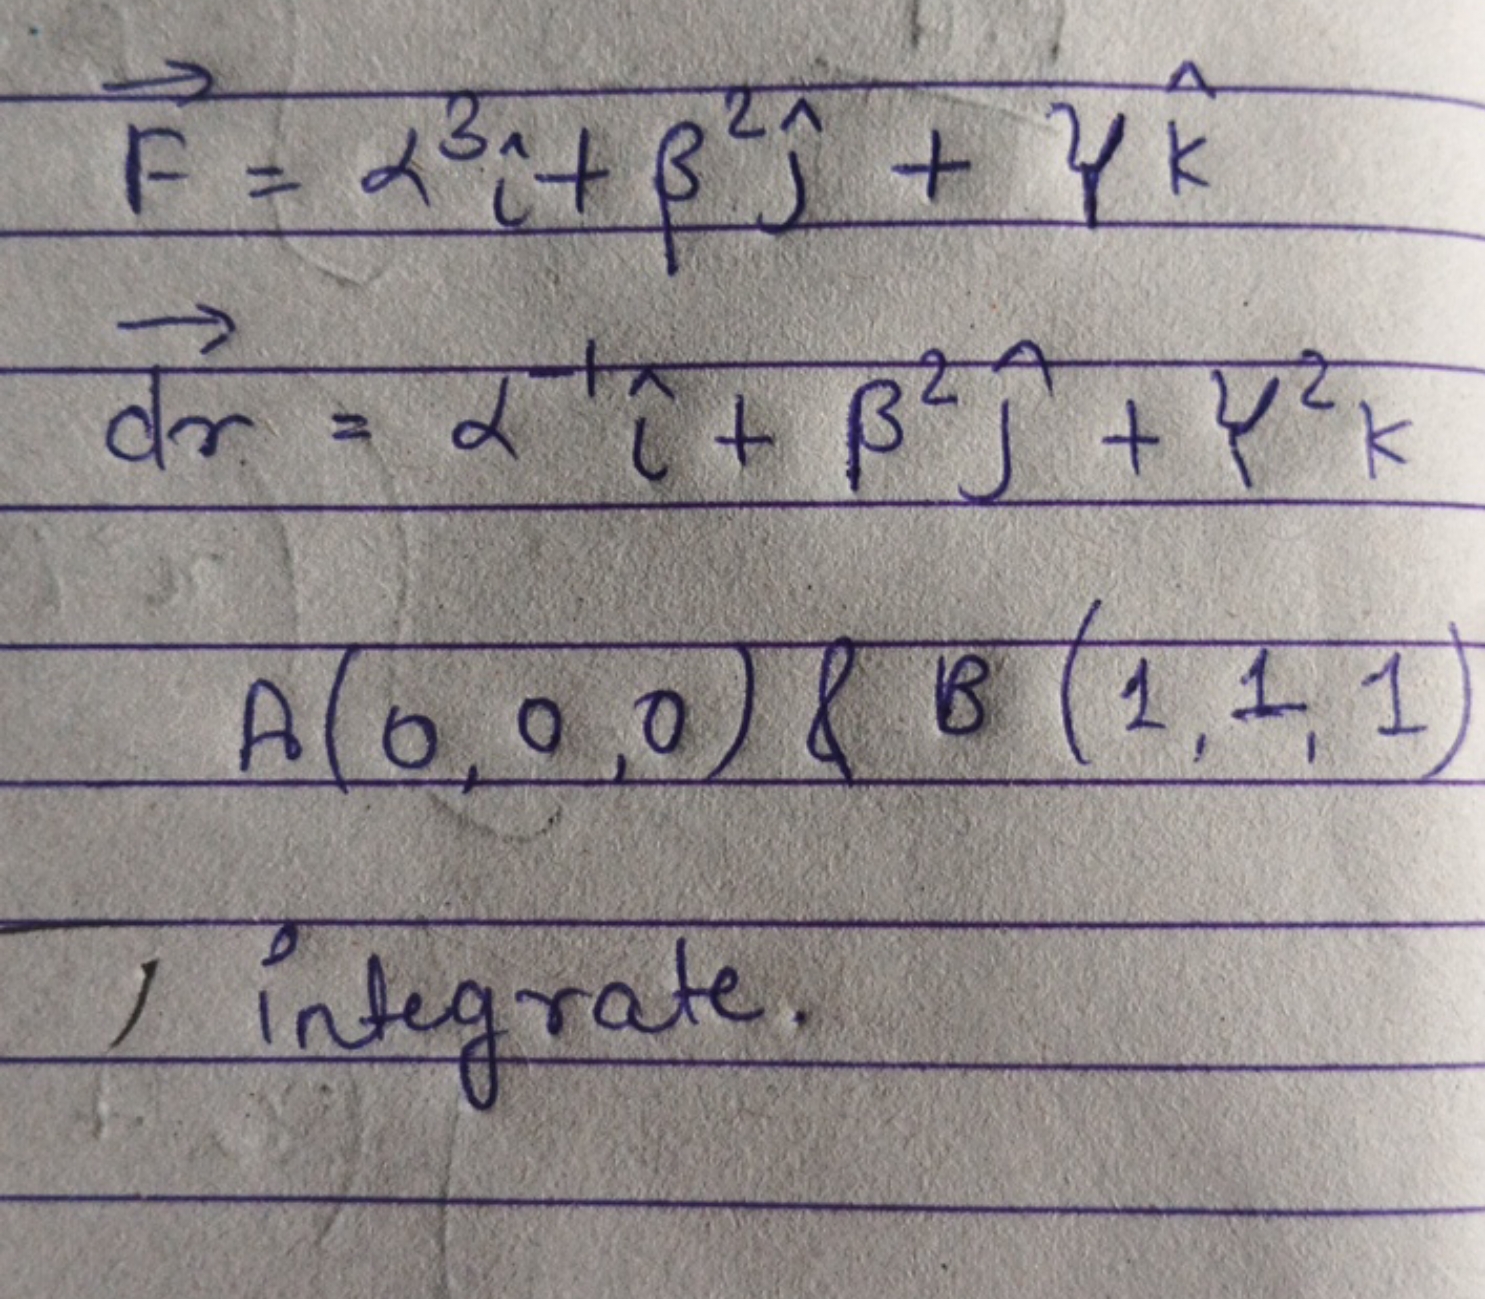 F⃗ = α³î + β²ĵ + γk̂
dr⃗ = α⁻¹î + β²ĵ + γ²k
A(0, 0, 0) & B (1, 1, 1)
, integrate.